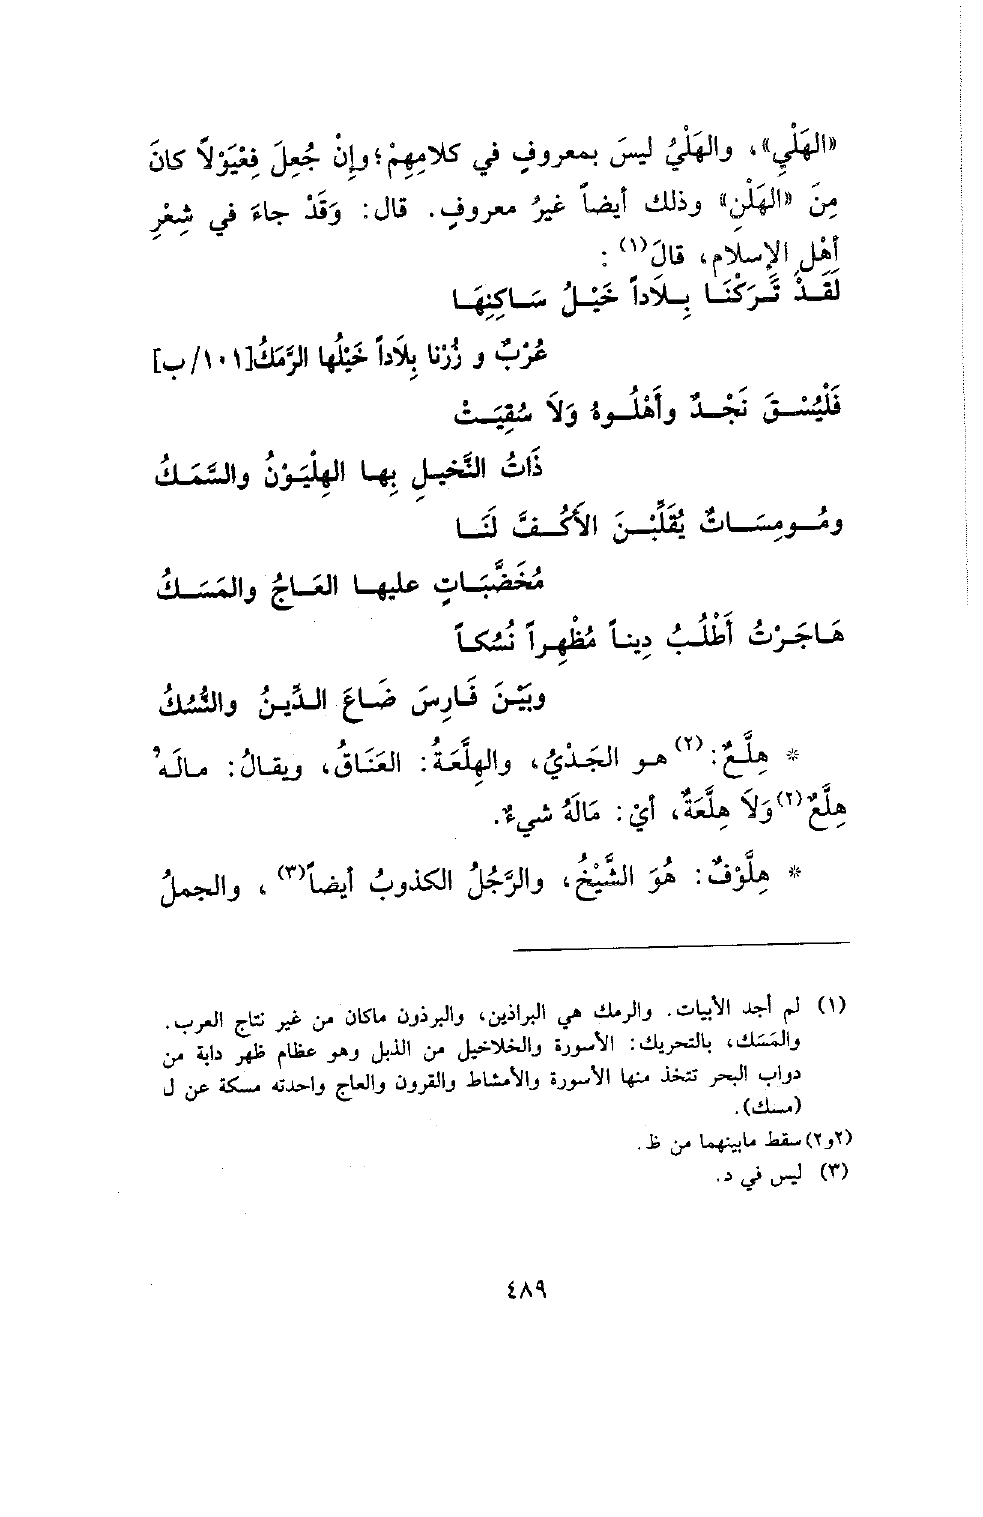 «الهَلْيِ»، والهَلْيُ ليسَ بمعروفٍ في كلامِهِمْ؛ وإِنْ جُعِلَ فِعْيَوْلاً كانَ
مِنَ «الهَلْنِ» وذلك أيضاً غيرُ معروفٍ. قال: وَقَدْ جاءَ في شِعْرِ
أهْلِ الإسلامِ، قالَ(١) :
لَقَدْ تَرَكْنَا بِلَاداً خَيْلُ سَاكِنِهَا
عُرْبٌ و زُرْنا بِلَاداً خَيْلُها الرَّمَكُ[١٠١/ب]
فَلْيُسْقَ نَجْدٌ وأَهْلُوهُ وَلَا سُقِيَتْ
ذَاتُ النَّخيلِ بِها الهِلْيَوْنُ والسَّمَكُ
ومُومِسَاتٌ يُقَلِّبْنَ الأَكُفَّ لَنَا
مُخَضَّبَاتٍ عليها العَاجُ والمَسَكُ
هَاجَرْتُ أَطْلُبُ دِيناً مُظْهِراً نُسُكاً
وبَيْنَ فَارِسَ ضَاعَ الدِّينُ والنُّسُكُ
* هِلَّعٌ:(٢) هو الجَدْيُ، والهِلَّعَةُ: العَنَاقُ، ويقالُ: مالَهُ
هِلَّعٌ(٢)وَلَا هِلَّعَةٌ، أيْ: مَالَهُ شيءٌ.
* هِلَّوْفٌ: هُوَ الشَّيْخُ، والرَّجُلُ الكذوبُ أيضاً(٣) ، والجملُ
(١) لم أجد الأبيات. والرمك هي البراذين، والبرذون ماكان من غير نتاج العرب.
والمَسَك، بالتحريك: الأسورة والخلاخيل من الذبل وهو عظام ظهر دابة من
دواب البحر تتخذ منها الأسورة والأمشاط والقرون والعاج واحدته مسكة عن ل
(مسك).
(٢و٢)سقط مابينهما من ظ.
(٣) ليس في د.
٤٨٩